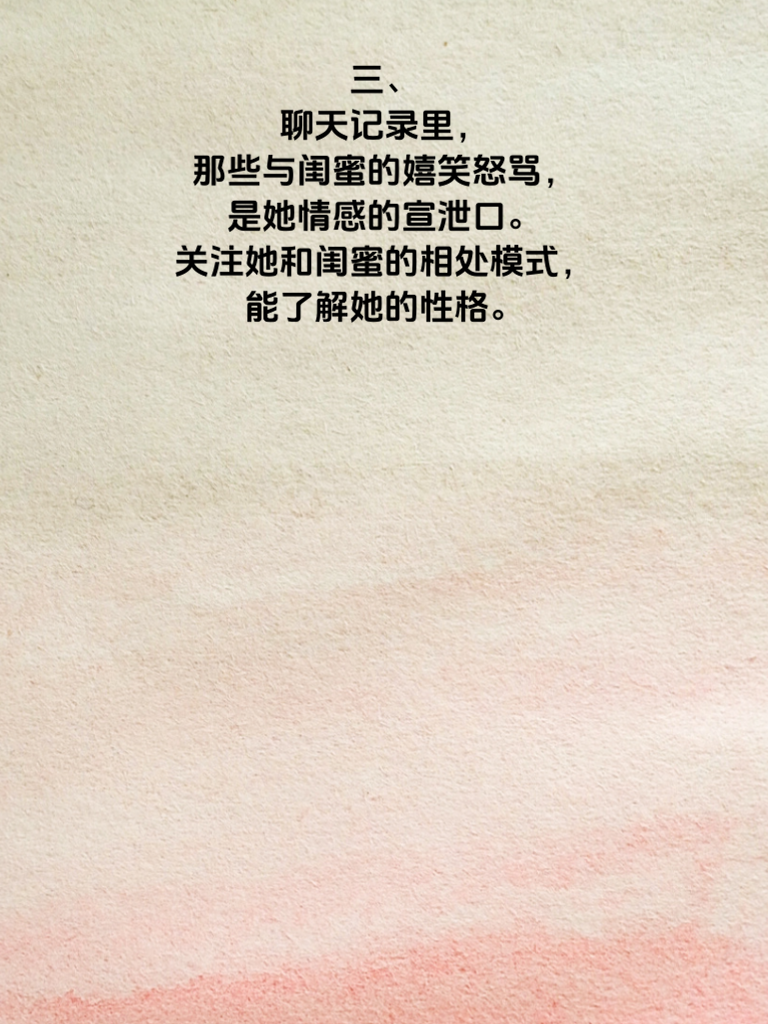 三、
聊天记录里，
那些与闺蜜的嬉笑怒骂，
是她情感的宣泄口。
关注她和闺蜜的相处模式，
能了解她的性格。